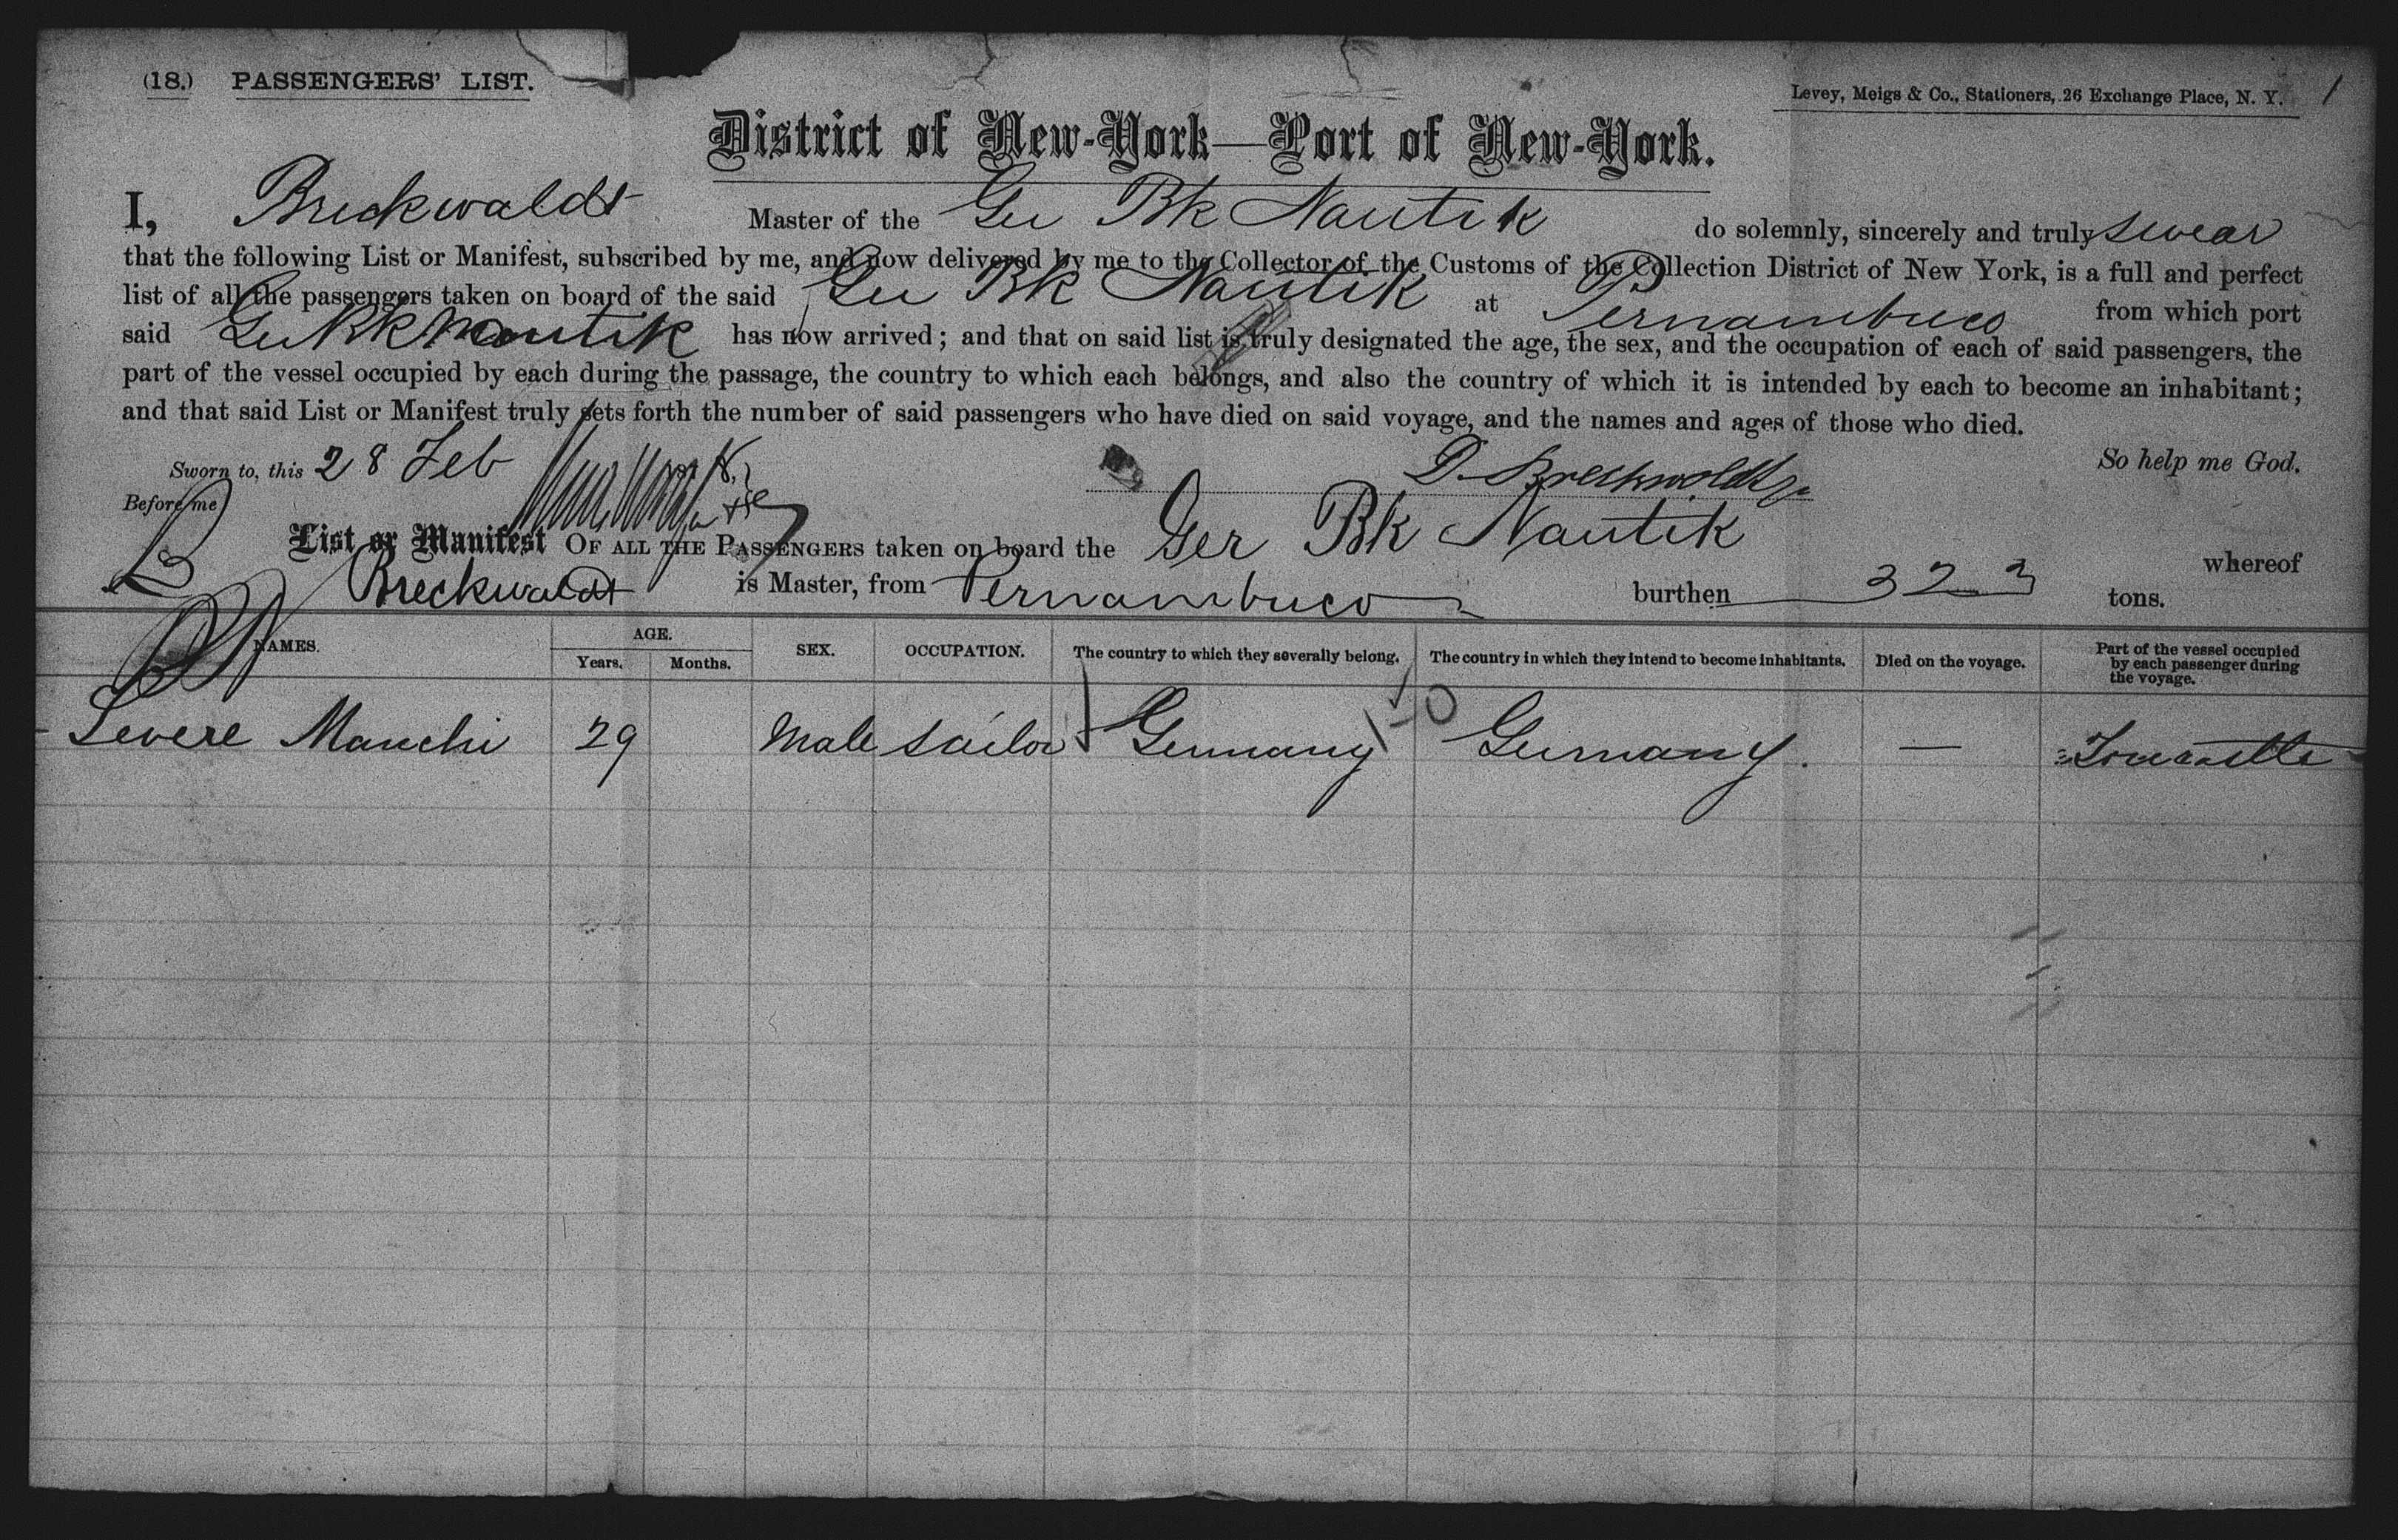 (18.) PASSENGERS' LIST.
Levey, Meigs & Co., Stationers, 26 Exchange Place, N. Y. 1
District of New-York—Port of New-York.
I, Breckwaldt Master of the Ger Bk Nautik do solemnly, sincerely and truly swear
that the following List or Manifest, subscribed by me, and now delivered by me to the Collector of the Customs of the Collection District of New York, is a full and perfect
list of all the passengers taken on board of the said Ger Bk Nautik at Pernambuco from which port
said Ger Bk Nautik has now arrived; and that on said list is truly designated the age, the sex, and the occupation of each of said passengers, the
part of the vessel occupied by each during the passage, the country to which each belongs, and also the country of which it is intended by each to become an inhabitant;
and that said List or Manifest truly sets forth the number of said passengers who have died on said voyage, and the names and ages of those who died.
Sworn to, this 28 Feb
D. Breckwoldt
So help me God.
Before me
List or Manifest OF ALL THE PASSENGERS taken on board the Ger Bk Nautik whereof
Breckwaldt is Master, from Pernambuco burthen 323 tons.
NAMES. AGE. Years. Months. SEX. OCCUPATION. The country to which they severally belong. The country in which they intend to become inhabitants. Died on the voyage. Part of the vessel occupied by each passenger during the voyage.
Severe Manchi 29 Male sailor Germany Germany. —